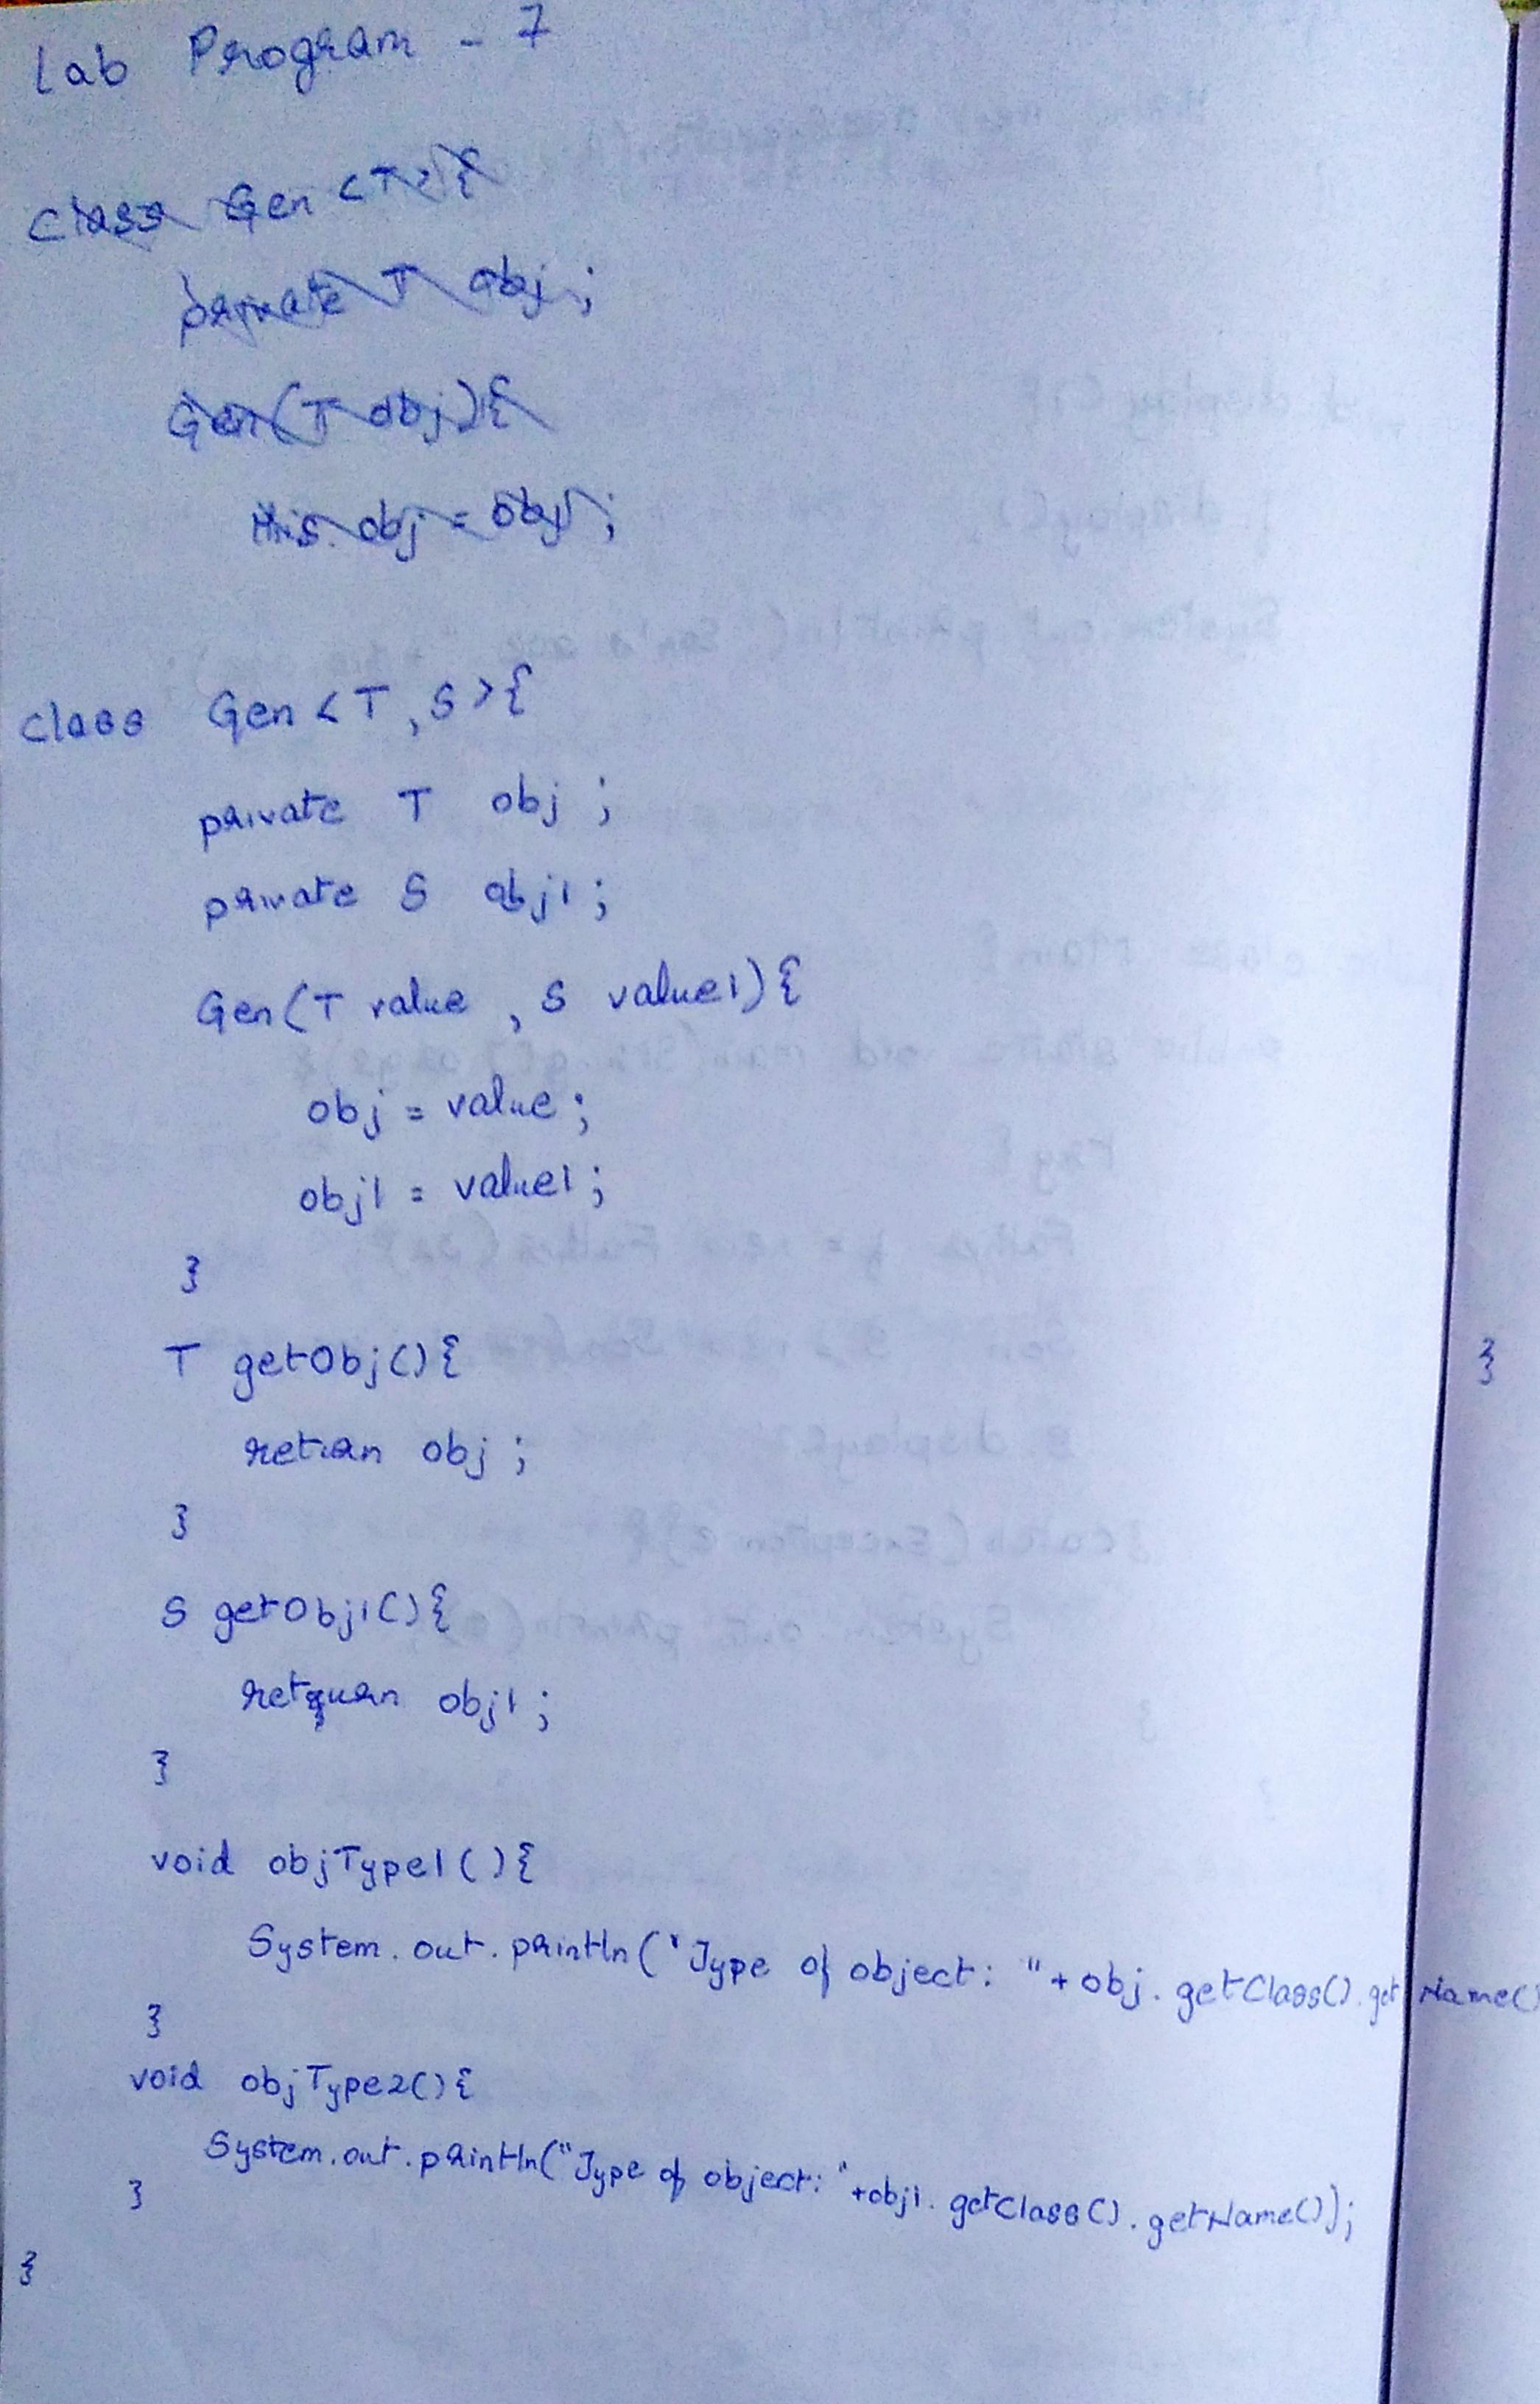 Lab Program - 7
Class Gen <T>{
private T obj ;
Gen(T obj){
this.obj = obj ;
class Gen <T, S>{
private T obj ;
private S obj1 ;
Gen(T value , S value1){
obj = value ;
obj1 = value1 ;
}
T getObj(){
return obj ;
}
S getObj1(){
return obj1 ;
}
void objType1(){
System.out.println("Type of object: "+ obj.getClass().getName()
}
void objType2(){
System.out.println("Type of object: "+obj1.getClass().getName());
}
}
}